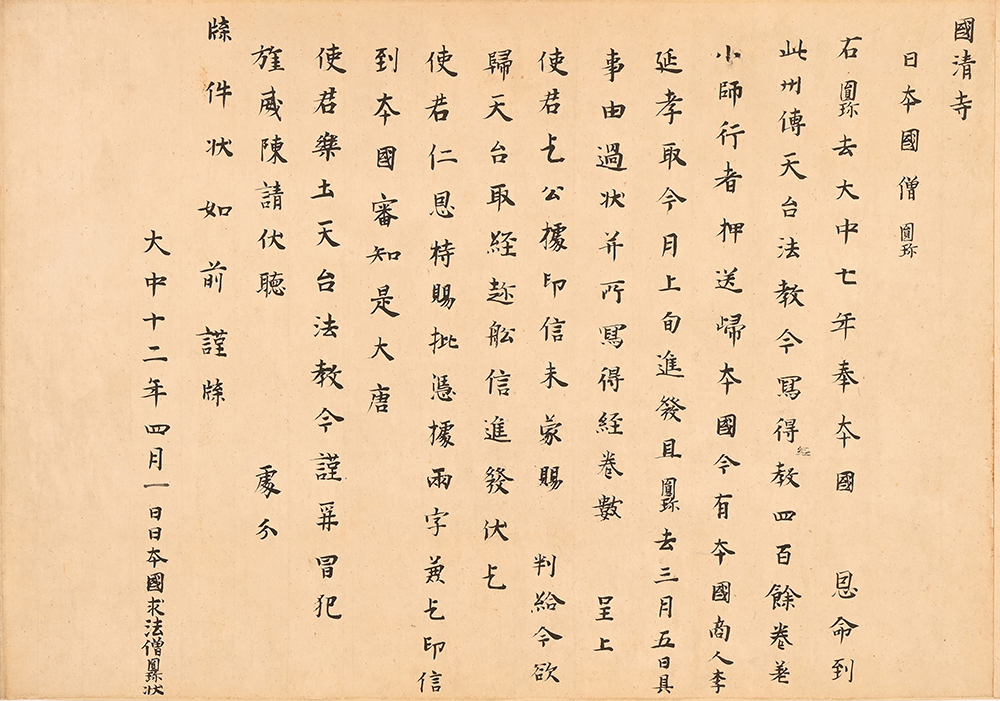 國清寺
日夲國僧圓珎
右圓珎去大中七年奉夲國 恩命到
此州傳天台法教今寫得教四百餘卷並
經
小師行者押送歸夲國今有夲國商人李
延孝取今月上旬進發且圓珎去三月五日具
事由過状并所寫得經卷數 呈上
使君乞公據印信未蒙賜 判給今欲
歸天台取經趂舩信進發伏乞
使君仁恩特賜批憑據兩字兼乞印信
到夲國審知是大唐
使君樂土天台法教今謹再冒犯
旌威陳請伏聴 處分
牒件状如前謹牒
大中十二年四月一日日夲國求法僧圓珎状